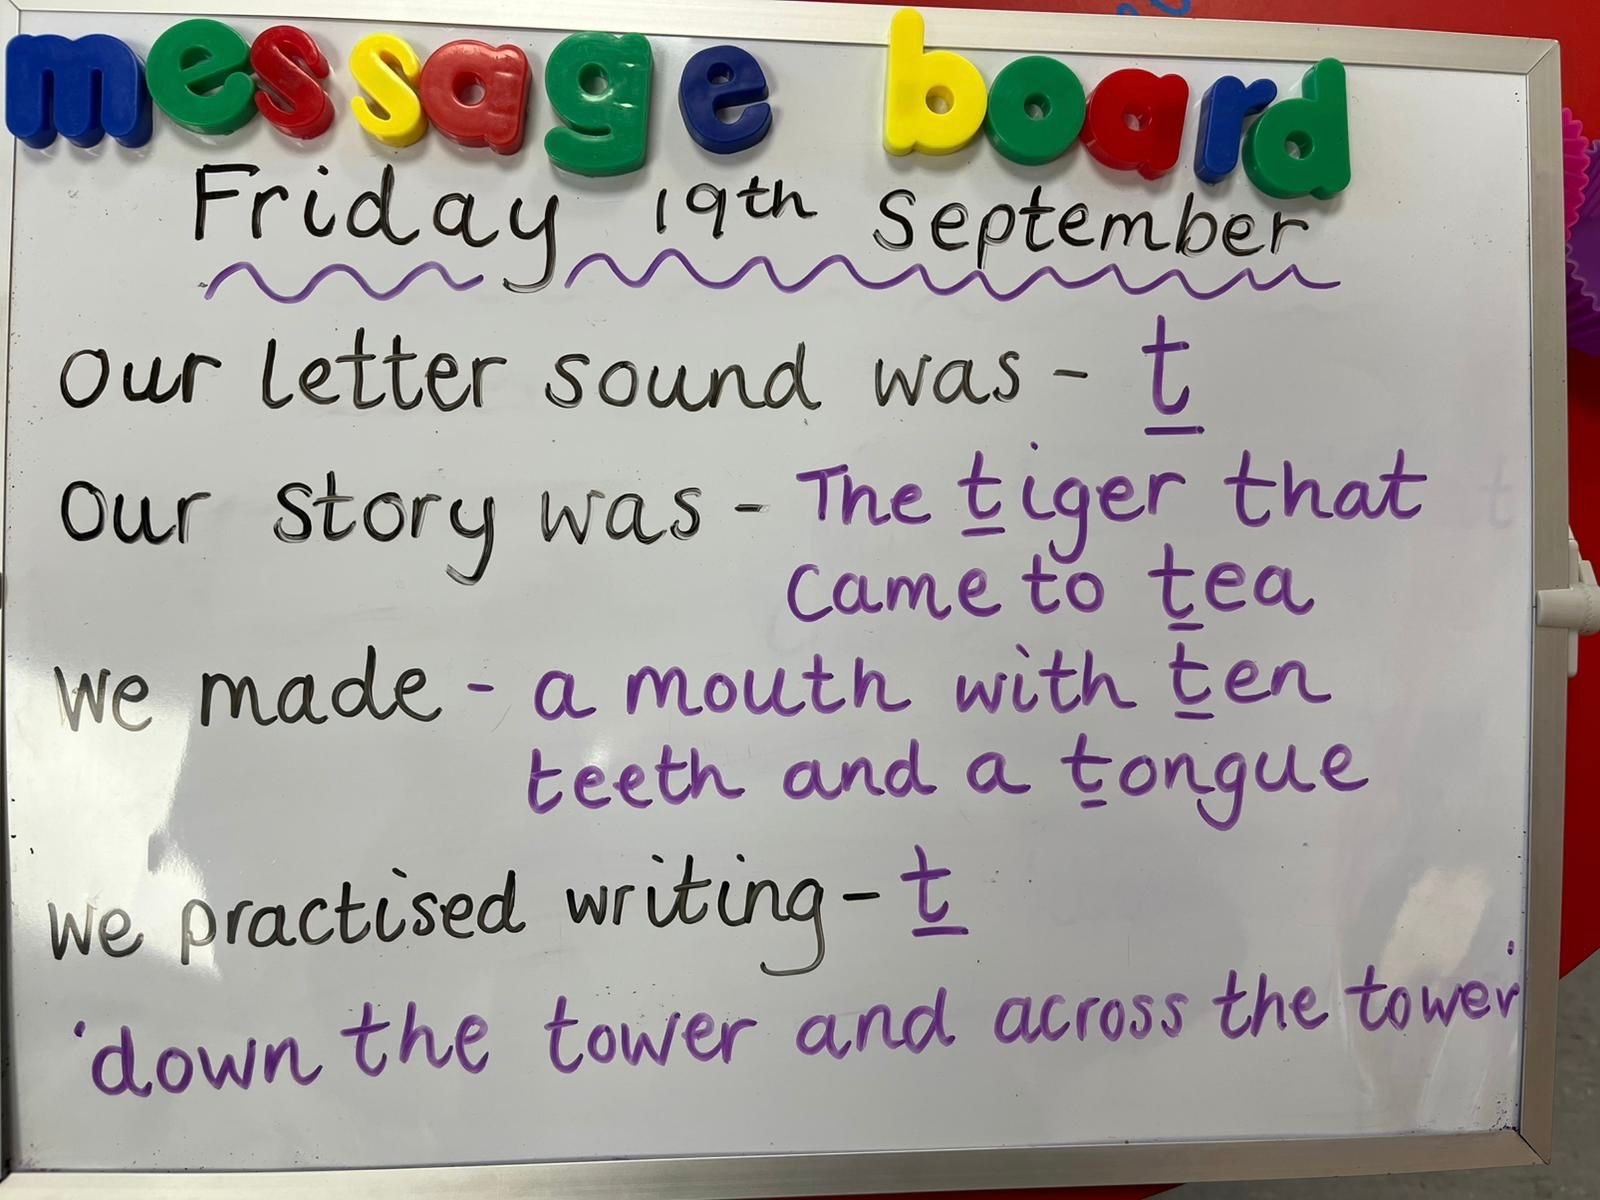 message board
Friday 19th September
Our letter sound was - t
Our story was - The tiger that
came to tea
We made - a mouth with ten
teeth and a tongue
We practised writing - t
'down the tower and across the tower'